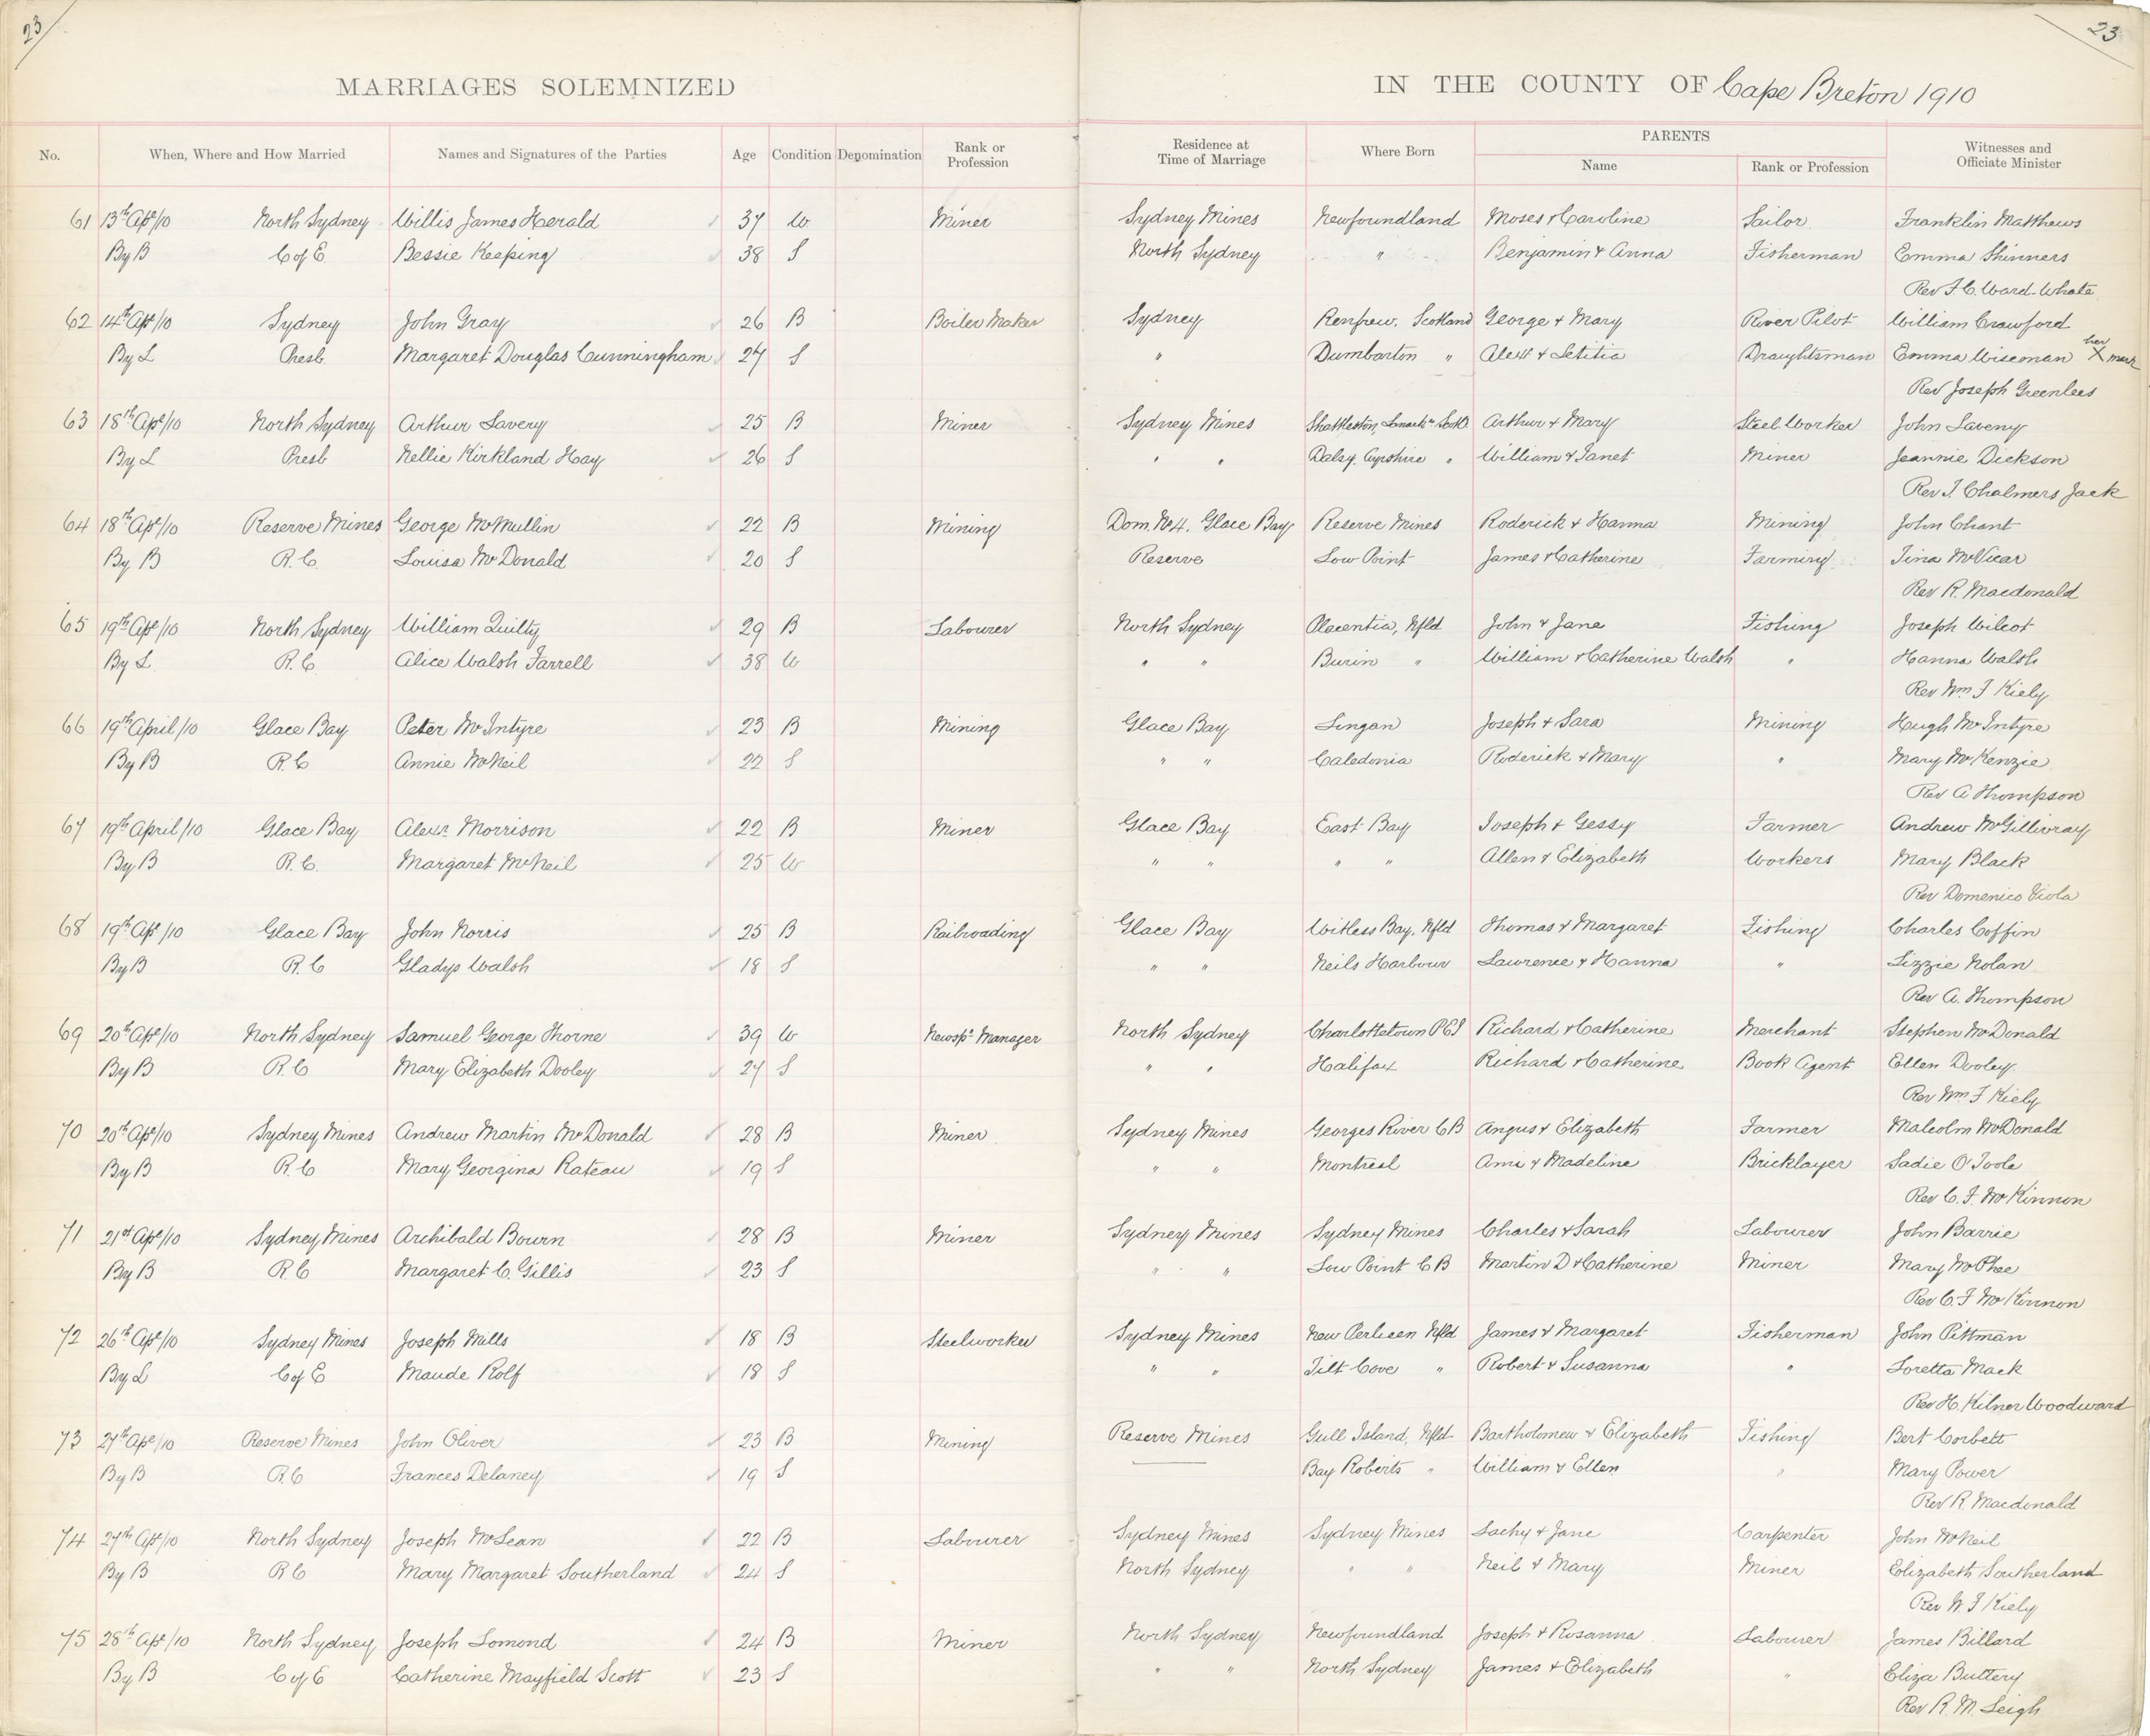 23
23
MARRIAGES SOLEMNIZED IN THE COUNTY OF Cape Breton 1910
No. When, Where and How Married Names and Signatures of the Parties Age Condition Denomination Rank or Profession Residence at Time of Marriage Where Born PARENTS Name Rank or Profession Witnesses and Officiate Minister
61 13th Apl/10 North Sydney Willis James Herald 37 W Miner Sydney Mines Newfoundland Moses & Caroline Sailor Franklin Matthews
By B C of E Bessie Keeping 38 S North Sydney " Benjamin & Anna Fisherman Emma Skinners
Rev F. C. Ward-Whate
62 14th Apl/10 Sydney John Gray 26 B Boiler Maker Sydney Renfrew, Scotland George & Mary River Pilot William Crawford
By L Presb. Margaret Douglas Cunningham 27 S " Dumbarton " Alexr & Letitia Draughtsman Emma Wiseman her X mark
Rev Joseph Greenlees
63 18th Apl/10 North Sydney Arthur Lavery 25 B Miner Sydney Mines Shettleston, Arthur & Mary Steel Worker John Laveny
By L Presb Nellie Kirkland Hay 26 S " " Dalry, Ayrshire " William & Janet Miner Jeannie Dickson
Rev T. Chalmers Jack
64 18th Apl/10 Reserve Mines George McMullin 22 B Mining Dom. No 4. Glace Bay Reserve Mines Roderick & Hanna Mining John Chant
By B R.C. Louisa McDonald 20 S Reserve Low Point James & Catherine Farming Tina McVicar
Rev R. Macdonald
65 19th Apl/10 North Sydney William Quilty 29 B Labourer North Sydney Placentia, Nfld John & Jane Fishing Joseph Wilcot
By L R.C. Alice Walsh Farrell 38 W " " Burin " William & Catherine Walsh " Hanna Walsh
Rev Wm F Kiely
66 19th April/10 Glace Bay Peter McIntyre 23 B Mining Glace Bay Lingan Joseph & Sara Mining Hugh McIntyre
By B R.C Annie McNeil 22 S " " Caledonia Roderick & Mary " Mary McKenzie
Rev A Thompson
67 19th April/10 Glace Bay Alexr Morrison 22 B Miner Glace Bay East Bay Joseph & Gessy Farmer Andrew McGillivray
By B R.C. Margaret McNeil 25 W " " " " Allen & Elizabeth Workers Mary Black
Rev Domenico Viola
68 19th Apl/10 Glace Bay John Norris 25 B Railroading Glace Bay Witless Bay, Nfld Thomas & Margaret Fishing Charles Coffin
By B R.C Gladys Walsh 18 S " " Neils Harbour Lawrence & Hanna " Lizzie Nolan
Rev A. Thompson
69 20th Apl/10 North Sydney Samuel George Thorne 39 W Newspr Manager North Sydney Charlottetown PEI Richard & Catherine Merchant Stephen McDonald
By B R.C Mary Elizabeth Dooley 27 S " " Halifax Richard & Catherine Book Agent Ellen Dooley
Rev Wm F Kiely
70 20th Apl/10 Sydney Mines Andrew Martin McDonald 28 B Miner Sydney Mines Georges River CB Angus & Elizabeth Farmer Malcolm McDonald
By B R.C Mary Georgina Rateau 19 S " " Montreal Ami & Madeline Bricklayer Sadie O'Toole
Rev C. F McKinnon
71 21st Apl/10 Sydney Mines Archibald Bourn 28 B Miner Sydney Mines Sydney Mines Charles & Sarah Labourer John Barrie
By B R.C Margaret C. Gillis 23 S " " Low Point CB Martin D & Catherine Miner Mary McPhee
Rev C. F McKinnon
72 26th Apl/10 Sydney Mines Joseph Mills 18 B Steelworker Sydney Mines New Perlican Nfld James & Margaret Fisherman John Pittman
By L C of E Maude Rolf 18 S " " Tilt Cove " Robert & Susanna " Loretta Mack
Rev H. Kilner Woodward
73 27th Apl/10 Reserve Mines John Oliver 23 B Mining Reserve Mines Gull Island, Nfld Bartholomew & Elizabeth Fishing Bert Corbett
By B R.C Frances Delaney 19 S Bay Roberts " William & Ellen " Mary Power
Rev R Macdonald
74 27th Apl/10 North Sydney Joseph McLean 22 B Labourer Sydney Mines Sydney Mines Lachy & Jane Carpenter John McNeil
By B RC Mary Margaret Southerland 24 S North Sydney " " Neil & Mary Miner Elizabeth Southerland
Rev W. F Kiely
75 28th Apl/10 North Sydney Joseph Lomond 24 B Miner North Sydney Newfoundland Joseph & Rosanna Labourer James Billard
By B C of E Catherine Mayfield Scott 23 S " " North Sydney James & Elizabeth " Eliza Buttery
Rev R. M. Leigh